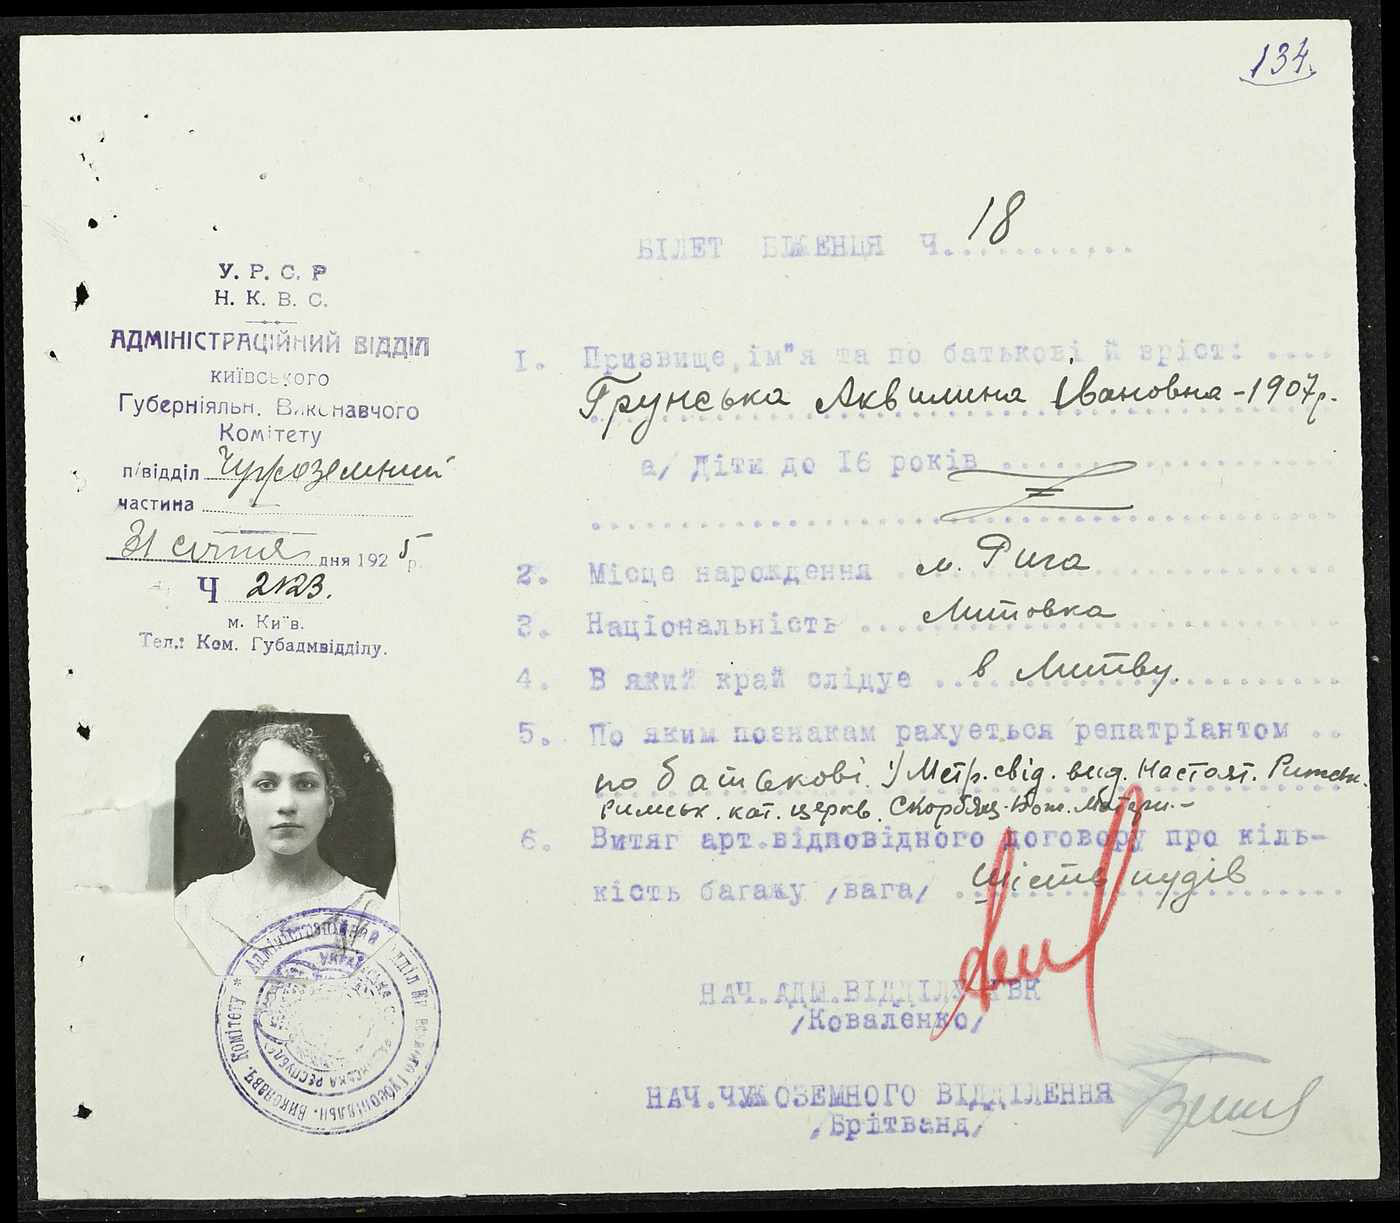 134.
У. Р. С. Р
Н. К. В. С.
АДМІНІСТРАЦІЙНИЙ ВІДДІЛ
КИЇВСЬКОГО
Губерніяльн. Виконавчого
Комітету
п/відділ Чужоземний
частина
31 січня дня 1925 р.
Ч 2123.
м. Київ.
Тел.: Ком. Губадмвідділу.
БІЛЕТ БІЖЕНЦЯ Ч. 18
1. Призвище, ім"я та по батькові й вріст:
Грунська Аквилина Івановна - 1907 р.
а/ Діти до 16 років
2. Місце народження м. Рига
3. Національність Литовка
4. В який край слідує в Литву.
5. По яким познакам рахується репатріантом
по батькові. У Метр. свід. вид. Настоят. Римськ.
Римськ. кат. церкв. Скорбящ. Бож. Матери. -
6. Витяг арт. відповідного договору про кіль-
кість багажу /вага/ шість пудів
НАЧ. АДМ. ВІДДІЛУ КВК
/Коваленко/
НАЧ. ЧУЖОЗЕМНОГО ВІДДІЛЕННЯ
/Брітванд/
Адміністраційний Відділ Київського Губерніяльн. Виконавч. Комітету *